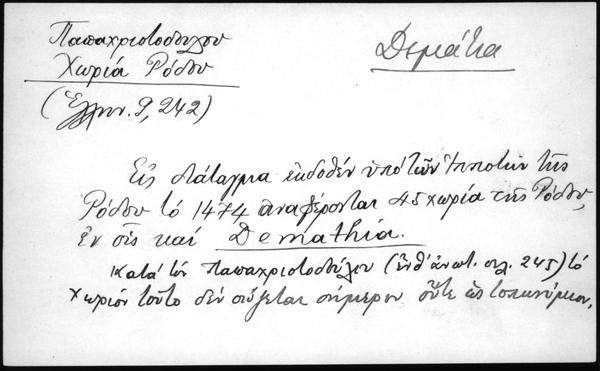 Παπαχριστοδούλου
Χωριά Ρόδου
(Ἑλλην. 9, 242)
Δεμάτια
Εἰς διάταγμα ἐκδοθέν ὑπό τῶν Ἱπποτῶν τῆς
Ρόδου τό 1474 ἀναφέρονται 45 χωρία τῆς Ρόδου,
ἐν οἷς καί Demathia.
Κατά τόν Παπαχριστοδούλου (ἔνθ' ἀνωτ. σελ. 245) τό
χωρίον τοῦτο δέν σώζεται σήμερον οὔτε ὡς τοπωνύμιον.